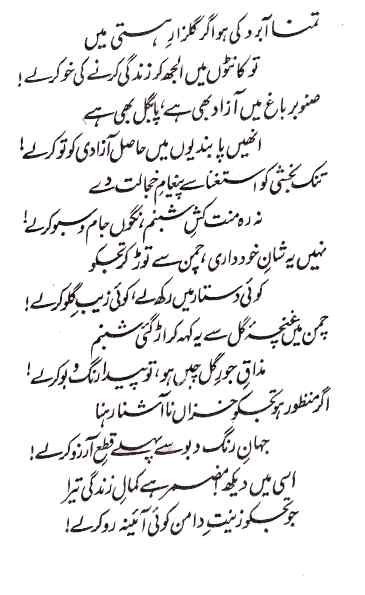 تمنا آبرو کی ہو اگر گلزارِ ہستی میں
تو کانٹوں میں الجھ کر زندگی کرنے کی خو کرلے!
صنوبر باغ میں آزاد بھی ہے، پابگل بھی ہے
انھیں پابندیوں میں حاصل آزادی کو تو کرلے!
تنک بخشی کو استغنا سے پیغامِ خجالت دے
نہ رہ منت کشِ شبنم، نگوں جام و سبو کرلے!
نہیں یہ شانِ خودداری، چمن سے توڑ کر تجکو
کوئی دستار میں رکھ لے، کوئی زیبِ گلو کرلے!
چمن میں غنچۂ گل سے یہ کہہ کر اڑ گئی شبنم
مذاقِ جورِ گلچیں ہو، تو پیدا رنگ و بو کرلے!
اگر منظور ہو تجکو خزاں ناآشنا رہنا
جہانِ رنگ و بو سے پہلے قطعِ آرزو کرلے!
اسی میں دیکھ! مضمر ہے کمالِ زندگی تیرا
جو تجکو زینتِ دامن کوئی آئینہ رو کرلے!